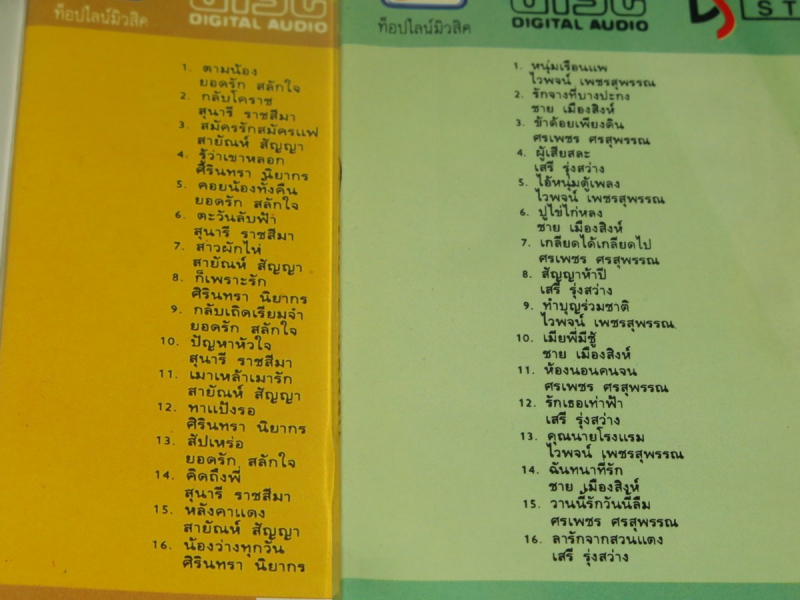 DIGITAL AUDIO
ท็อปไลน์มิวสิค
1. ตามน้อง
ยอดรัก สลักใจ
2. กลับโคราช
สุนารี ราชสีมา
3. สมัครรักสมัครแฟ
สายัณห์ สัญญา
4. รู้ว่าเขาหลอก
ศิรินทรา นิยากร
5. คอยน้องทั้งคืน
ยอดรัก สลักใจ
6. ตะวันลับฟ้า
สุนารี ราชสีมา
7. สาวผักไห่
สายัณห์ สัญญา
8. ก็เพราะรัก
ศิรินทรา นิยากร
9. กลับเถิดเรียมจ๋า
ยอดรัก สลักใจ
10. ปัญหาหัวใจ
สุนารี ราชสีมา
11. เมาเหล้าเมารัก
สายัณห์ สัญญา
12. ทาแป้งรอ
ศิรินทรา นิยากร
13. สัปเหร่อ
ยอดรัก สลักใจ
14. คิดถึงพี่
สุนารี ราชสีมา
15. หลังคาแดง
สายัณห์ สัญญา
16. น้องว่างทุกวัน
ศิรินทรา นิยากร
DIGITAL AUDIO
ST
ท็อปไลน์มิวสิค
1. หนุ่มเรือนแพ
ไวพจน์ เพชรสุพรรณ
2. รักจางที่บางปะกง
ชาย เมืองสิงห์
3. ข้าด้อยเพียงดิน
ศรเพชร ศรสุพรรณ
4. ผู้เสียสละ
เสรี รุ่งสว่าง
5. ไอ้หนุ่มตู้เพลง
ไวพจน์ เพชรสุพรรณ
6. ปูไข่ไก่หลง
ชาย เมืองสิงห์
7. เกลียดได้เกลียดไป
ศรเพชร ศรสุพรรณ
8. สัญญาห้าปี
เสรี รุ่งสว่าง
9. ทำบุญร่วมชาติ
ไวพจน์ เพชรสุพรรณ
10. เมียพี่มีชู้
ชาย เมืองสิงห์
11. ห้องนอนคนจน
ศรเพชร ศรสุพรรณ
12. รักเธอเท่าฟ้า
เสรี รุ่งสว่าง
13. คุณนายโรงแรม
ไวพจน์ เพชรสุพรรณ
14. ฉันทนาที่รัก
ชาย เมืองสิงห์
15. วานนี้รักวันนี้ลืม
ศรเพชร ศรสุพรรณ
16. ลารักจากสวนแตง
เสรี รุ่งสว่าง